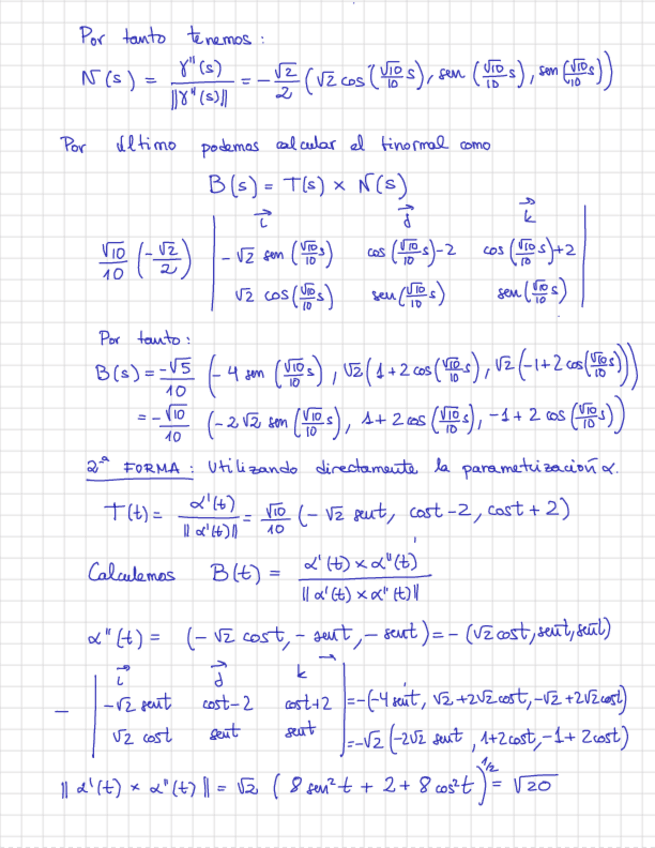 Por tanto tenemos:
N(s) = γ''(s) / ||γ''(s)|| = -√2/2 (√2 cos(√10/10 s), sen(√10/10 s), sen(√10/10 s))
Por último podemos calcular el binormal como
B(s) = T(s) × N(s)
i j k
√10/10 (-√2/2) | -√2 sen(√10/10 s) cos(√10/10 s)-2 cos(√10/10 s)+2 |
√2 cos(√10/10 s) sen(√10/10 s) sen(√10/10 s)
Por tanto:
B(s) = -√5/10 (-4 sen(√10/10 s), √2(1+2cos(√10/10 s), √2(-1+2cos(√10/10 s)))
= -√10/10 (-2√2 sen(√10/10 s), 1+2cos(√10/10 s), -1+2cos(√10/10 s))
2ª FORMA: Utilizando directamente la parametrización α.
T(t) = α'(t) / ||α'(t)|| = √10/10 (-√2 sent, cost-2, cost+2)
Calculemos B(t) = α'(t) × α''(t) / ||α'(t) × α''(t)||
α''(t) = (-√2 cost, -sent, -sent) = -(√2 cost, sent, sent)
i j k
- | -√2 sent cost-2 cost+2 | = -(-4 sent, √2+2√2 cost, -√2+2√2 cost)
√2 cost sent sent | = -√2 (-2√2 sent, 1+2cost, -1+2cost)
||α'(t) × α''(t)|| = √2 (8 sen²t + 2 + 8 cos²t)^1/2 = √20